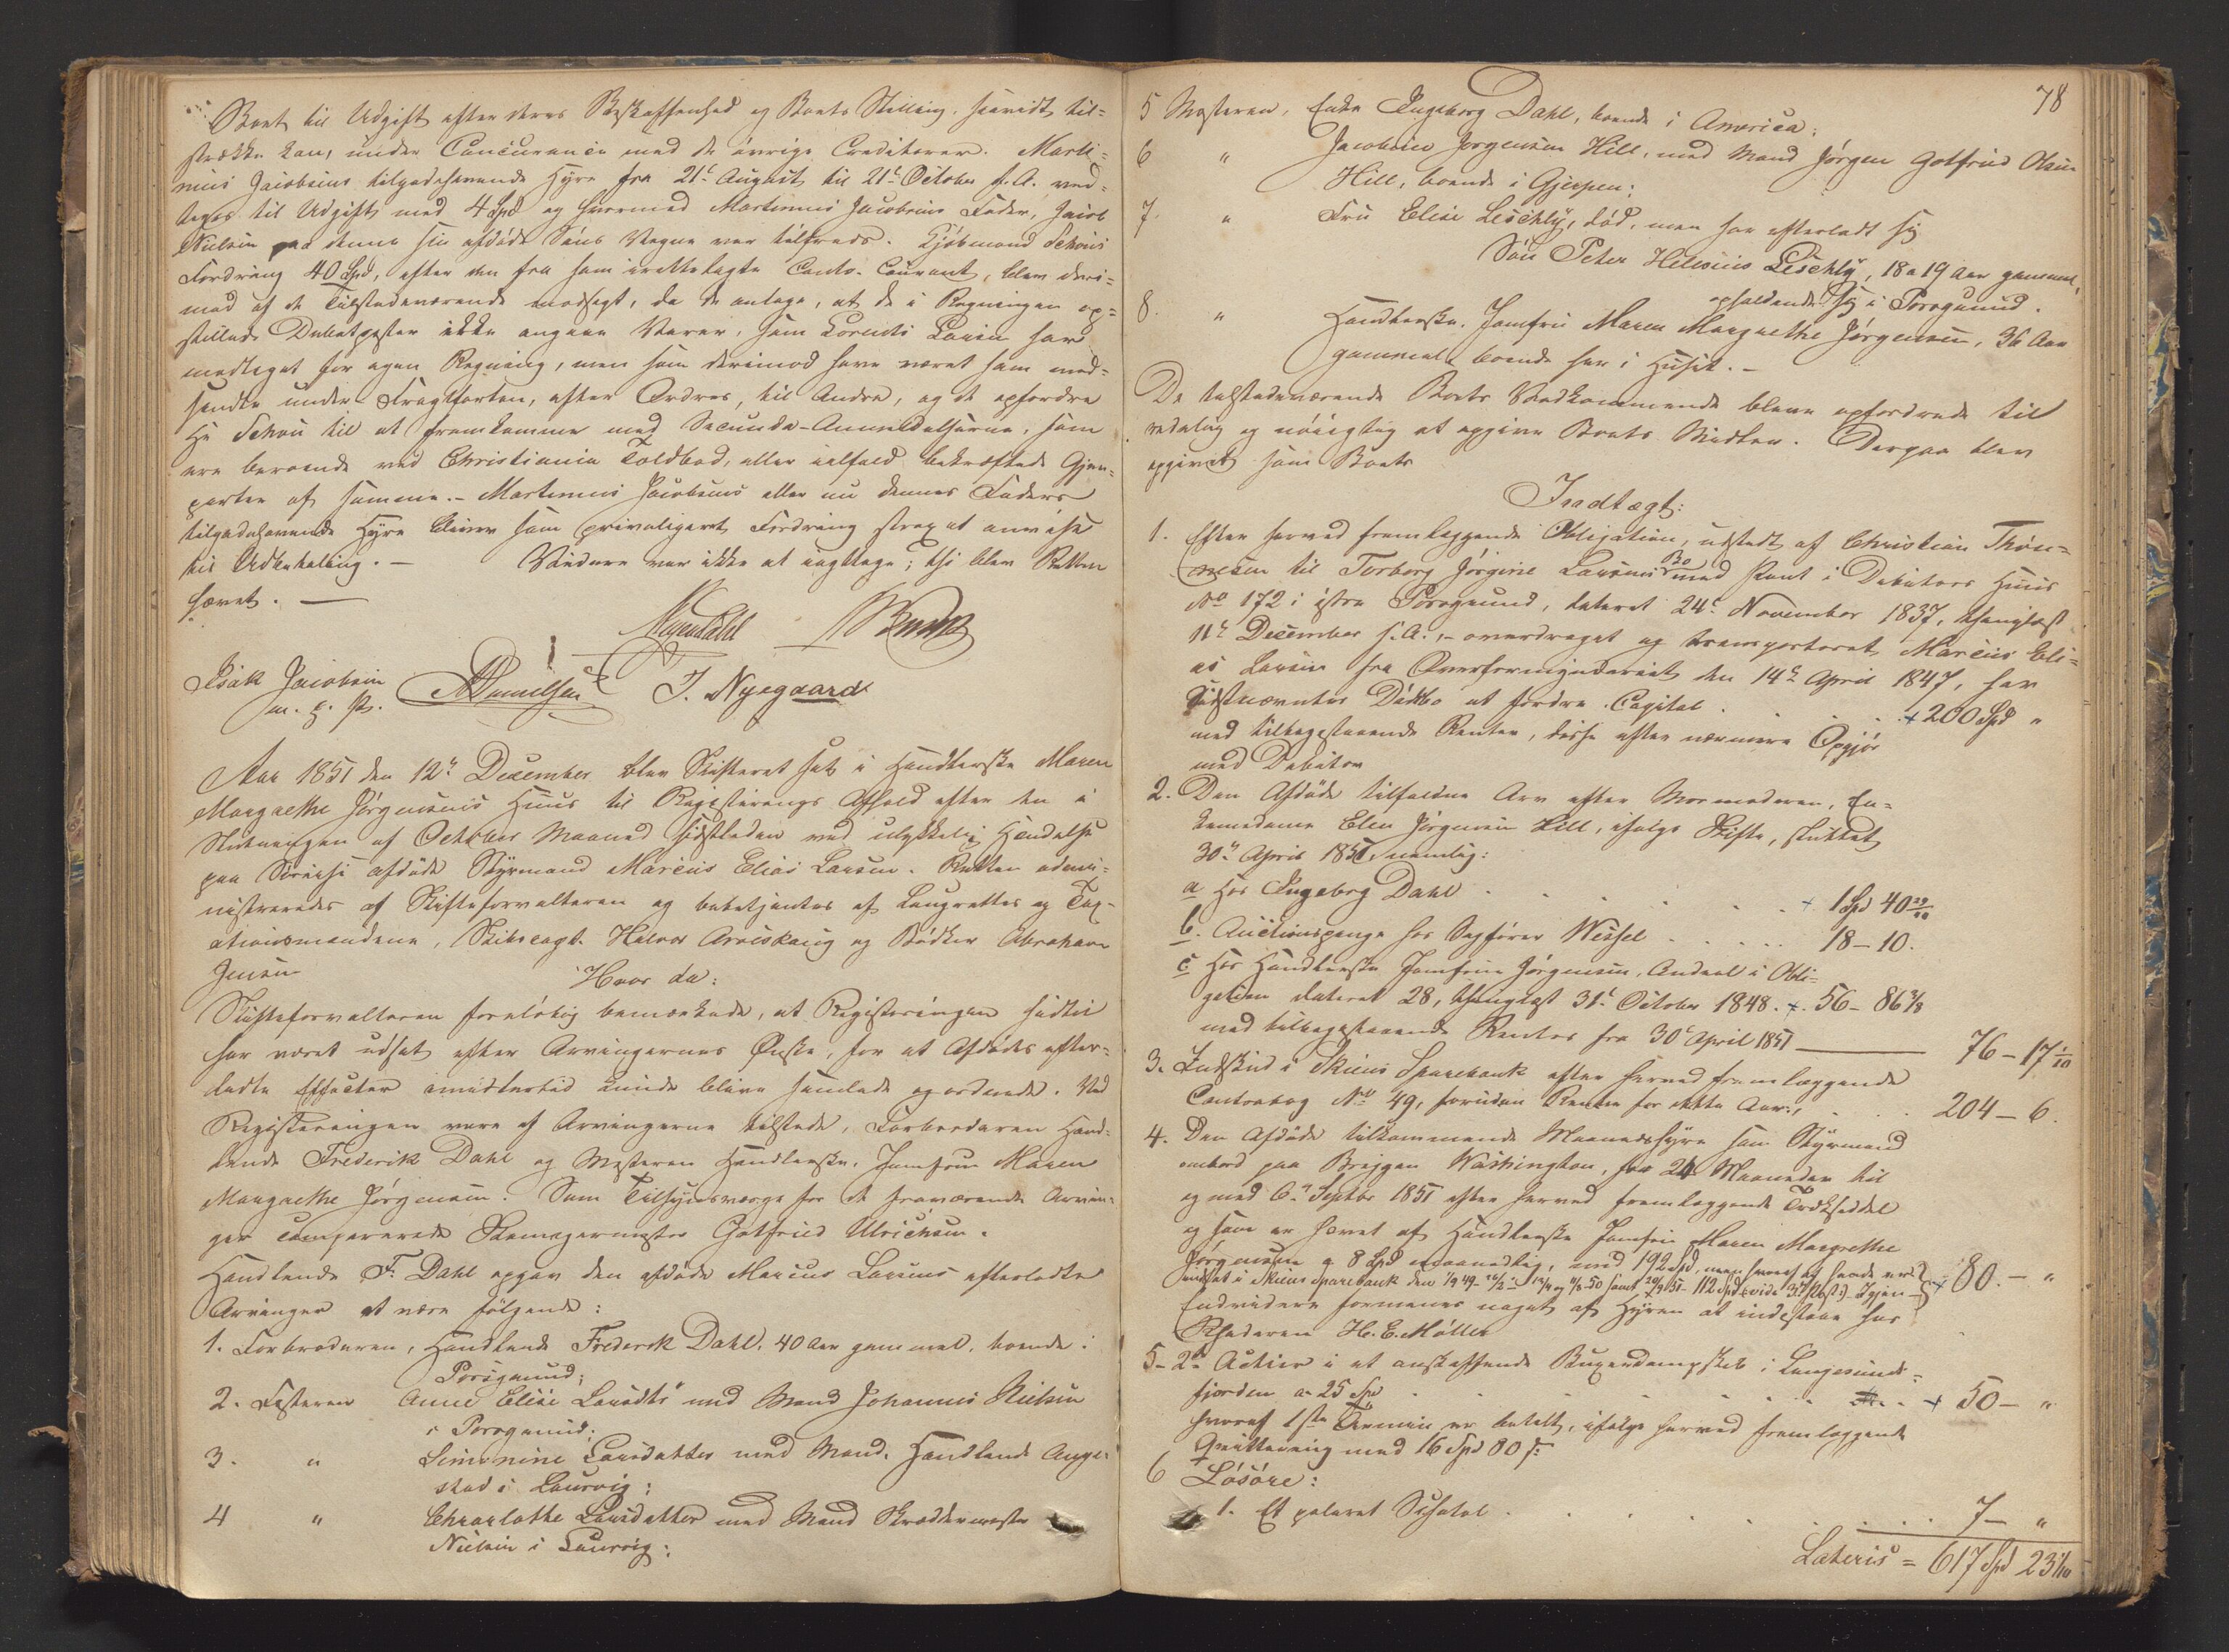 Boet til Udgift efter deres Beskaffenhed og Boets Stilling, saavidt til-
strække kan, under Concurance med de øvrige Creditorer. Marti-
nius Jacobsens tilgodehavende Hyre fra 21de August til 21de October f. A. ved-
toges til Udgift med 4 Spd og hvormed Martinius Jacobsens Fader, Jacob
Nielsen paa denne sin afdøde Søns Vegne var tilfreds. Kjøbmand Schous
Fordring 40 Spd, efter den fra ham irettelagte Conto-Courant, blev deri-
mod af de Tilstedeværende modsagt, da de antage, at de i Regningen op-
stillede Debetposter ikke angaae Varer, som Lorents Larsen har
modtaget for egen Regning, men som derimod have været ham med-
sendte under Fragtfarten, efter Ordres, til Andre, og de opfordre
Hr Schou til at fremkomme med Secunda-Anmeldelserne, som
ere beroende ved Christiania Toldbod, eller ialfald bekræftede Gjen-
parter af samme. – Martinius Jacobsens eller nu dennes Faders
tilgodehavende Hyre bliver som priviligeret Fordring strax at anvise
til Udbetaling. – Videre var ikke at iagttage; thi blev Retten
hævet. –
Isak Jacobsen
m. p. P.
A Danielsen J. Nyegaard
Aar 1851 den 12te December blev Skifteret sat i Handlerske Maren
Margrethe Jørgensens Huus til Registrerings Afhold efter den i
Slutningen af October Maaned sidstleden ved ulykkelig Hændelse
paa Søreise afdøde Styrmand Marcus Elias Larsen. Retten admi-
nistreredes af Skifteforvalteren og betjentes af Laugrettes og Tax-
ationsmændene, Skibscapt. Halvor Aroeskaug og Bødker Abraham
Jensen Hvor da:
Skifteforvalteren foreløbig bemærkede, at Registreringen hidtil
har været udsat efter Arvingernes Ønske, for at Afdødes efter-
ladte Effecter imidlertid kunde blive samlede og ordnede. Ved
Registreringen vare af Arvingerne tilstede, Farbroderen Hand-
lende Frederik Dahl og Mosteren Handlerske, Jomfrue Maren
Margrethe Jørgensen. Som Tilsynsværge for de fraværende Arvin-
ger comparerede Skomagermester Gotfried Ulrichsen.
Handlende F. Dahl opgav den afdøde Marcus Larsens efterladte
Arvinger at være følgende:
1. Farbroderen, Handlende Frederik Dahl, 40 Aar gammel, boende i
Porsgrund;
2. Fasteren Anne Elise Larsdtr med Mand Johannes Nielsen
i Porsgrund;
3. " Simonine Larsdatter med Mand, Handlende Ange-
stad i Laurvig;
4 " Charlotte Larsdatter med Mand Skræddermester
Nielsen i Laurvig;
78
5 Mosteren, Enke Ingeborg Dahl, boende i America;
6 " Jacobine Jørgensen Hill, med Mand Jørgen Gotfried Olsen
Hill, boende i Gjerpen;
7. " Fru Elise Leschly, død, men har efterladt sig
Søn Peter Helenius Leschly, 18 a 19 Aar gammel,
opholdende sig i Porsgrund.
8. " Handlerske, Jomfru Maren Margrethe Jørgensen, 36 Aar
gammel, boende her i Huset. –
De tilstedeværende Boets Vedkommende bleve opfordrede til
redelig og nøiagtig at opgive Boets Midler. Derpaa blev
opgivet som Boets
Indtægt:
1. Efter herved fremlæggende Obligation, udstedt af Christian Thøn-
nesen til Torborg Jørgine Larsens Bo med Pant i Debitors Huus
No 172 i østre Porsgrund, dateret 24de November 1837, thinglæst
11te December s. A., – overdraget og transporteret Marcus Eli-
as Larsen fra Overformynderiet den 14de April 1847, har
Sidstnævntes Dødsbo at fordre Capital . . . + 200 Spd "
med tilbagestaaende Renter, disse efter nærmere Opgjør
med Debitor
2. Den Afdøde tilfaldne Arv efter Mormoderen, En-
kemadame Elen Jørgensen Hill, ifølge Skifte, sluttet
30te April 1851, nemlig:
a Hos Ingeborg Dahl . . . . . + 1 Spd 40 29/40
b. Auctionspenge hos Sagfører Wessel . . . . . 18 – 10.
c Hos Handlerske Jomfrue Jørgensen, Andeel i Obli-
gation dateret 28, thinglæst 31te October 1848. + 56 – 86 3/8
med tilbagestaaende Renter fra 30te April 1851 — 76 – 17 1/10
3. Indskud i Skiens Sparebank efter herved fremlæggende
Contrabog No 49, foruden Renter for dette Aar, . . . 204 – 6.
4. Den Afdøde tilkommende Maanedshyre som Styrmand
ombord paa Briggen Washington, for 24 Maaneder til
og med 6te Septbr 1851 efter herved fremlæggende Trækseddel
og som er hævet af Handlerske Jomfru Maren Margrethe
Jørgensen a 8 Spd maanedlig, med 192 Spd, men hvoraf hende er
indsat i Skiens Sparebank den 1/9 49 – 26/2 – 12/4 og 9/8 50 samt 20/9 51 – 112 Spd (: vide 3die Post :) – Igjen – + 80. – "
Endvidere formenes noget af Hyren at indestaae hos
Rhederen H. E. Møller
5 – 2de Actier i et anskaffende Buxerdampskib i Langesunds-
fjorden a 25 Spd . . . . . + 50 – "
hvoraf 1ste Termin er betalt, ifølge herved fremlæggende
Qvittering med 16 Spd 80 s:
6 Løsøre:
1. Et poleret Schatol . . . . . 7 – "
Lateris = 617 Spd 23 1/10